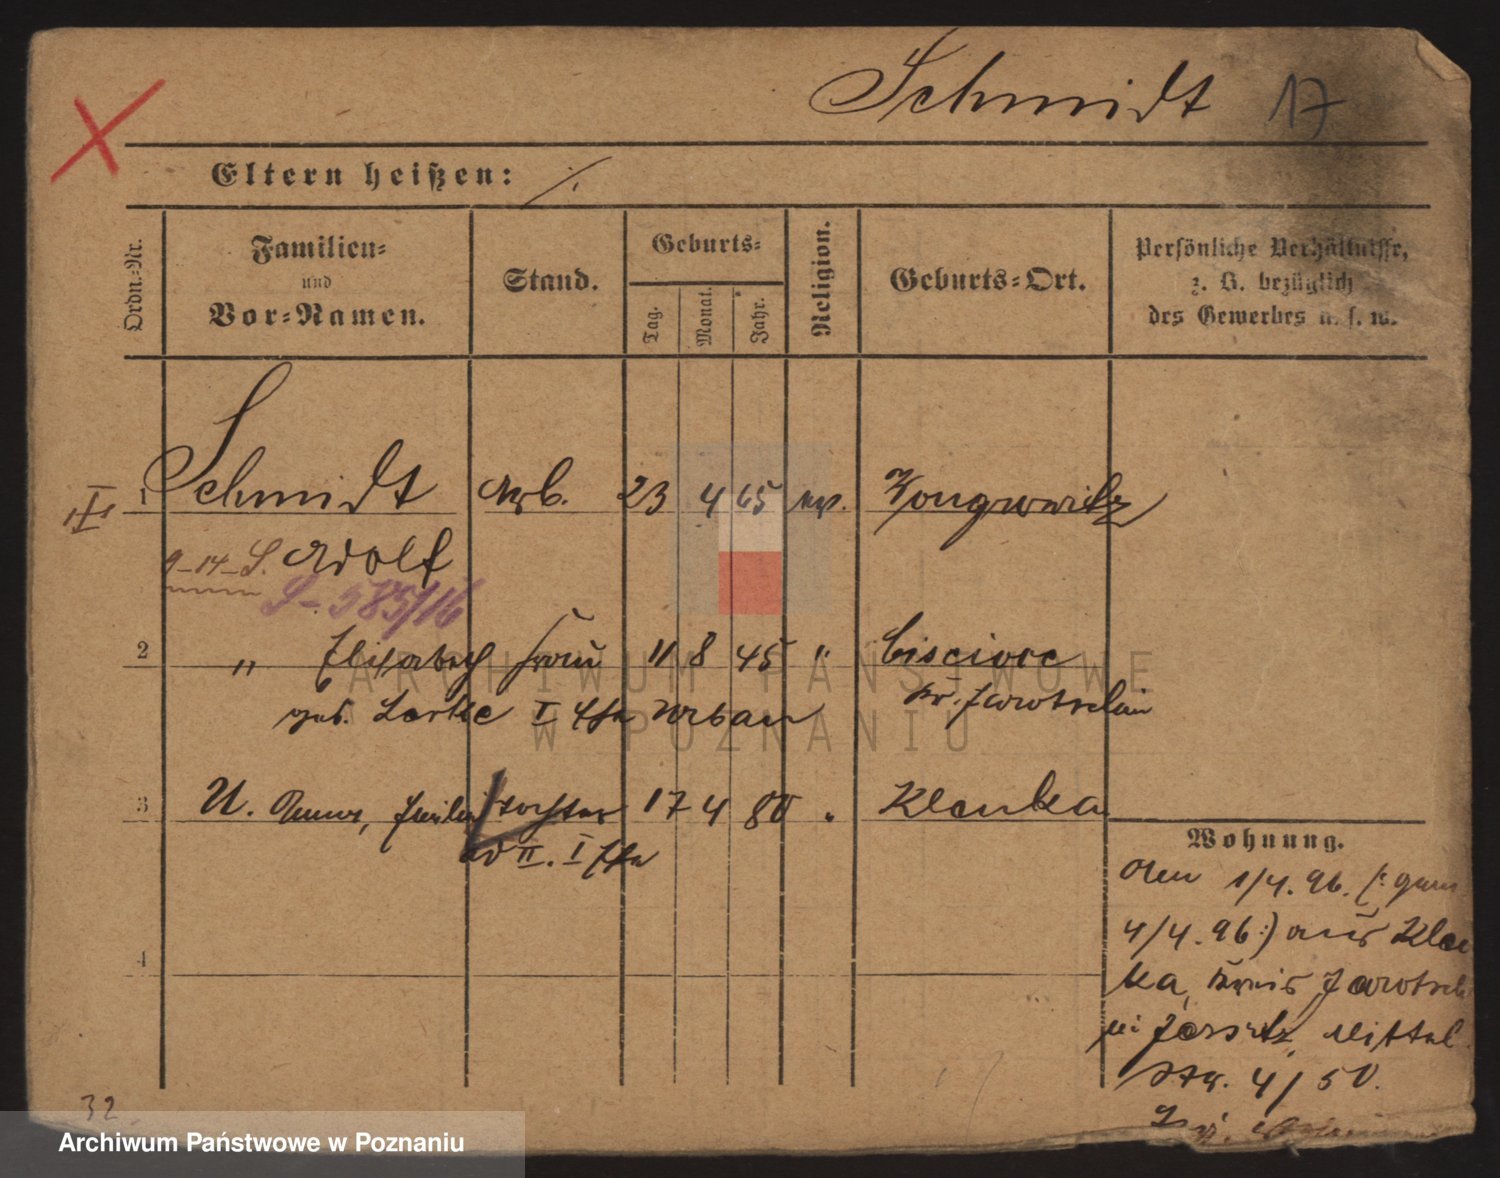 Schmidt 17
Eltern heißen: ./.
Ordn.-Nr.
Familien-
und
Vor-Namen.
Stand.
Geburts-
Tag.
Monat.
Jahr.
Religion.
Geburts-Ort.
Persönliche Verhältnisse,
z. B. bezüglich
des Gewerbes u. s. w.
1 Schmidt Arb. 23 4 65 Wongrowitz
9-14-S. Adolf
S-585/16
2 " Elisabeth Frau 11 8 45 " Cisciorc
geb. Lerke I Ehe Urban Kr. Jarotschin
3 U. Anna, Tochter 17 4 80 " Klenka
ad II. I Ehe
4
Wohnung.
Am 1/4. 96. (: gem
4/4. 96 :) aus Klen
ka, Kreis Jarotsch
Jersitz, Mittel
Str. 4/50.
32
ARCHIWUM PAŃSTWOWE
W POZNANIU
Archiwum Państwowe w Poznaniu